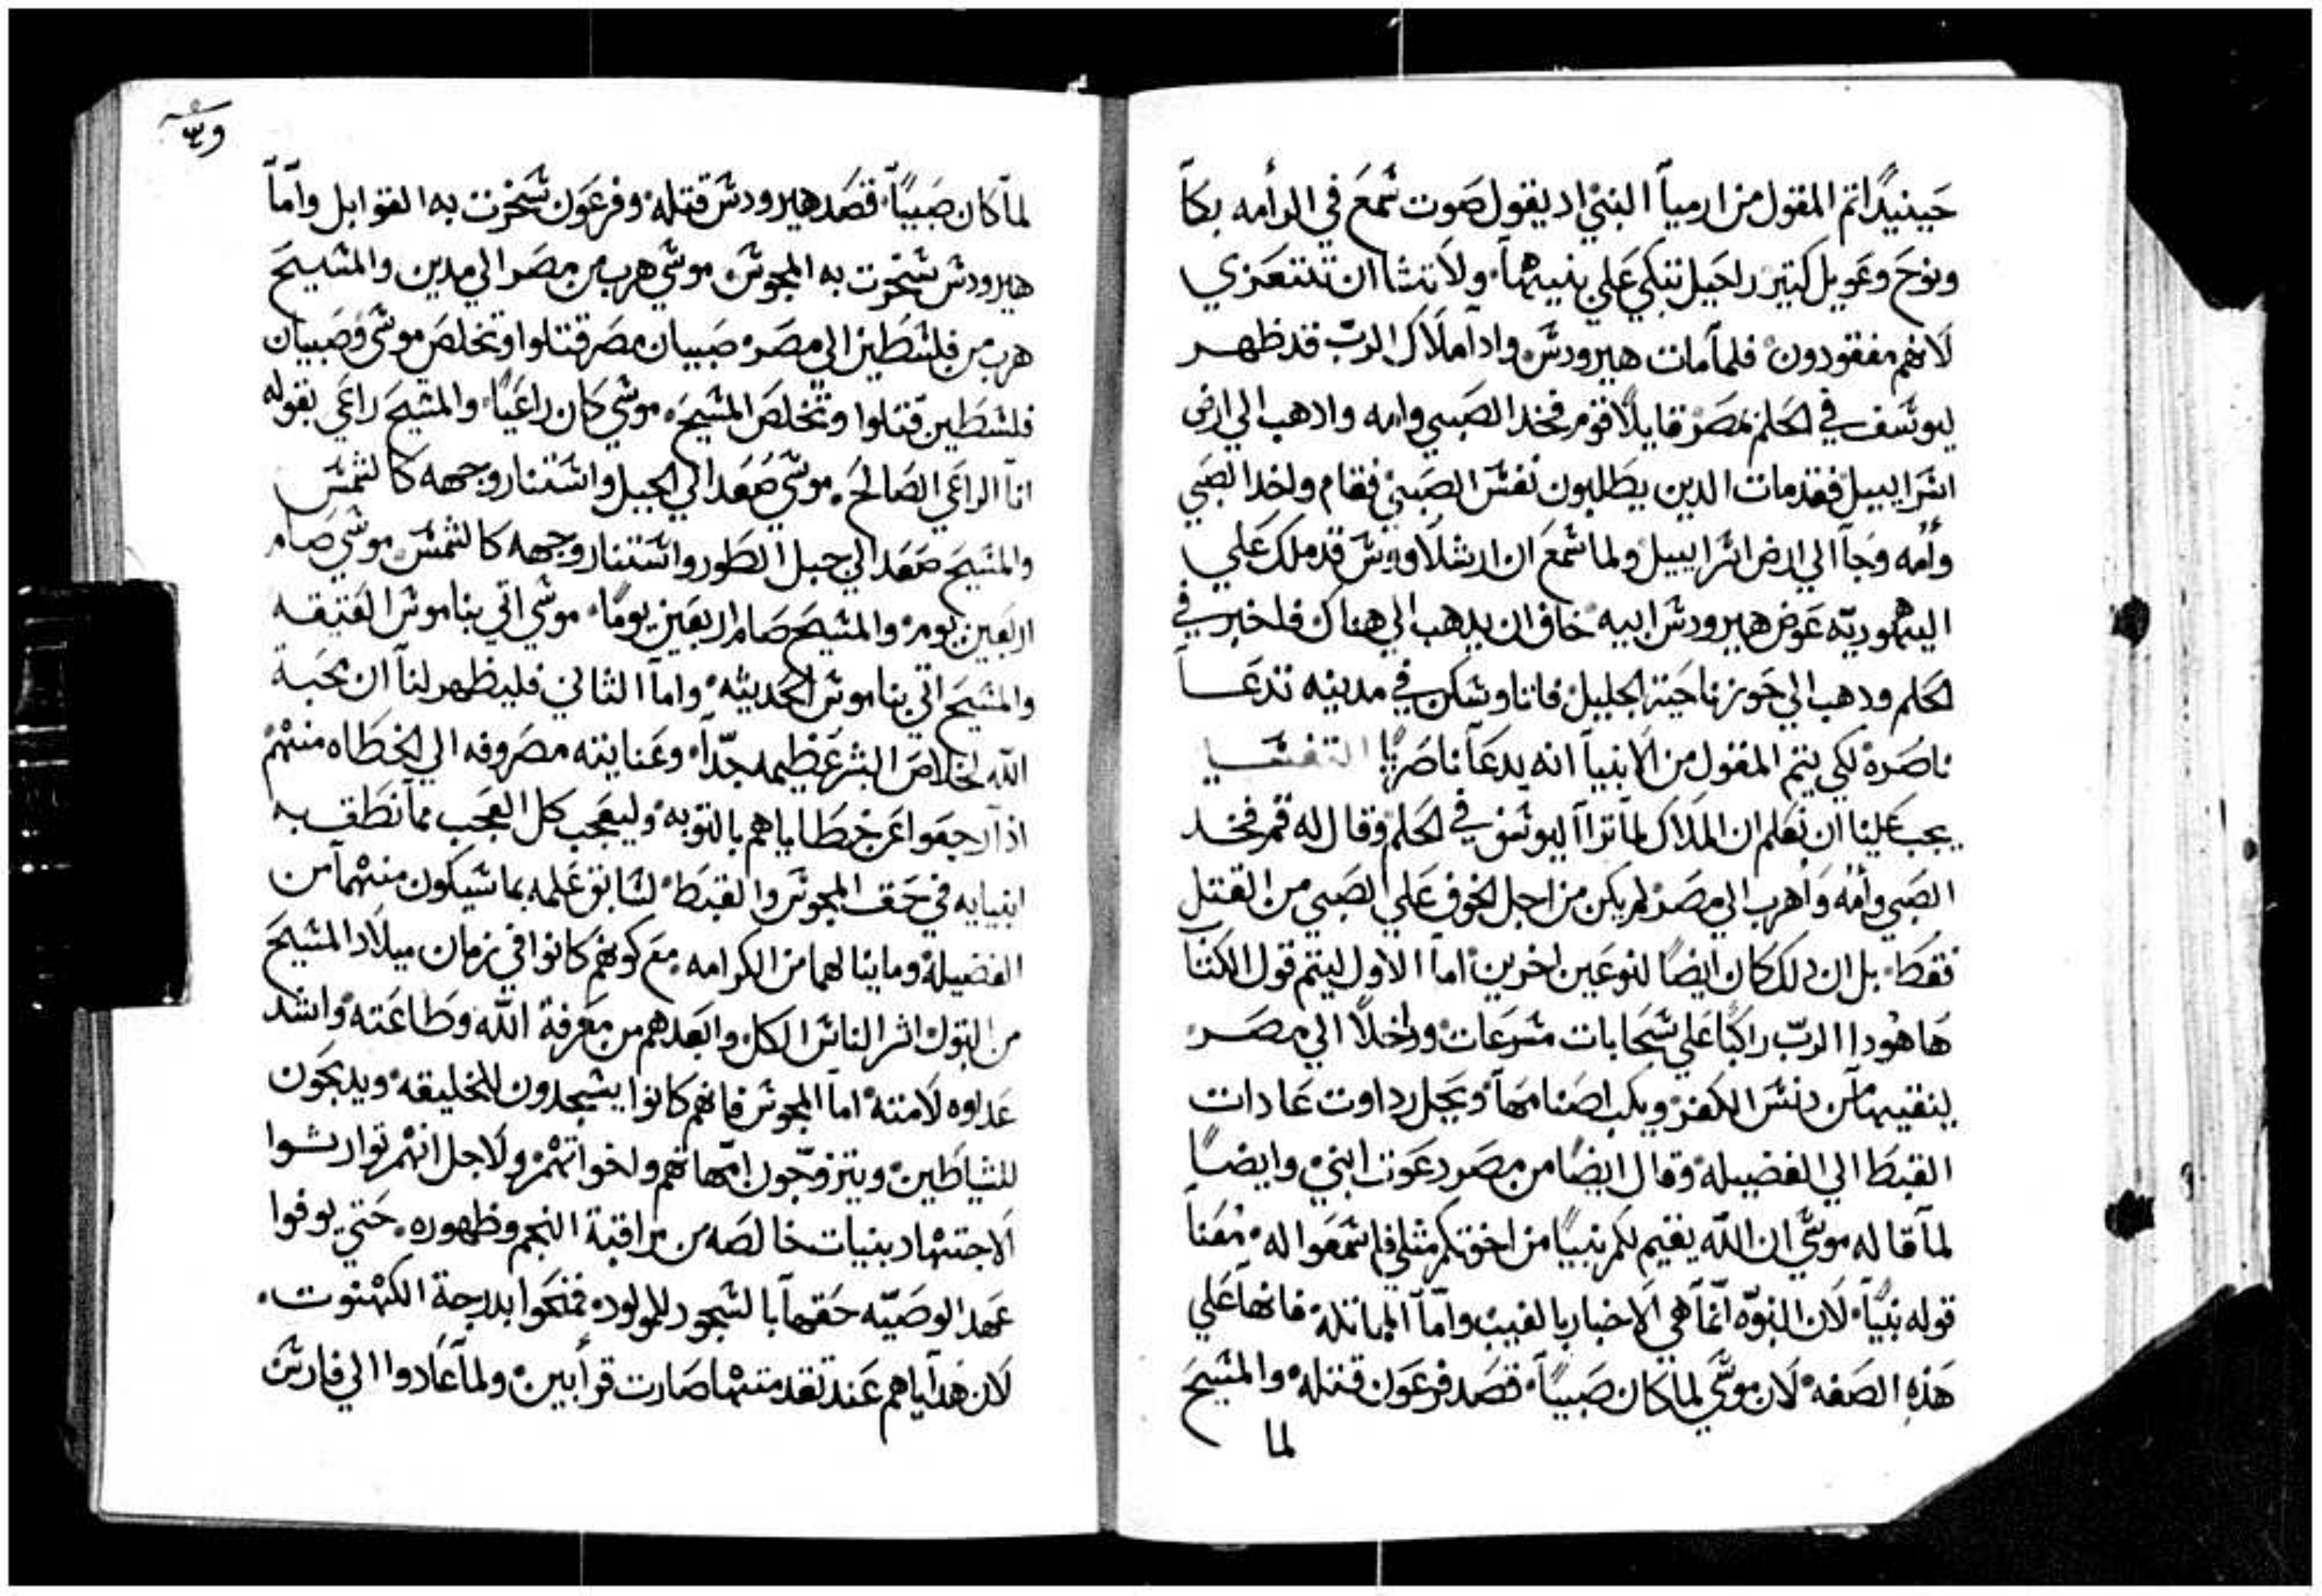 حينيدًا تم المقول من ارمياً النبي اد يقول صوت شمع في الرأمه بكآ
ونوح وعويل كتير راحيل تبكي علي بنيها ولا تشا ان تتعزي
لانهم مفقودون فلما مات هيرودس وادا ملاك الرب قد ظهر
ليوسف في الحلم بمصر قايلًا قوم فخد الصبي وامه وادهب الي ارض
اسراييل فقد مات الدين يطلبون نفس الصبي فقام واخد الصبي
وأمه وجآ الي ارض اسراييل ولما سمع ان ارشلاووس قد ملك علي
اليهوديّه عوض هيرودس ابيه خاف ان يدهب الي هناك فاخبر في
الحلم ودهب الي حوز ناحية الجليل فاتا وسكن في مدينه تدعا
ناصرة لكي يتم المقول من الانبيا انه يدعا ناصريًا التفسير
يجب علينا ان نعلم ان الملاك لما تراآ ليوسف في الحلم وقال له قم فخد
الصبي وأمه وأهرب الي مصر لم يكن من اجل الخوف علي الصبي من القتل
فقط بل ان دلك كان ايضًا لنوعين اخرين اما الاول ليتم قول الكتاب
ها هودا الرب راكبًا علي سحابات مسرعات وداخلًا الي مصر
لينقيها من دنس الكفر ويكب اصنامها ويجل رداوت عادات
القبط الي الفضيله وقال ايضًا من مصر دعوت ابني وايضًا
لما قاله موسي ان الله يقيم لكم نبيًا من اخوتكم مثلي فاسمعوا له معنا
قوله نبيًا لان النبوّه انما هي الاخبار بالغيب واما المماتله فانها علي
هذه الصفه لان موسي لما كان صبيًا قصد فرعون قتله والمسيح
لما
لما كان صبيًا قصد هيرودس قتله وفرعون سخرت به القوابل واما
هيرودس سخرت به المجوس موسي هرب من مصر الي مدين والمسيح
هرب من فلسطين الي مصر صبيان مصر قتلوا وتخلص موسي وصبيان
فلسطين قتلوا وتخلص المسيح موسي كان راعيًا والمسيح راعي بقوله
انا الراعي الصالح موسي صعد الي الجبل واستنار وجهه كالشمس
والمسيح صعد الي جبل الطور واستنار وجهه كالشمس موسي صام
اربعين يوم والمسيح صام اربعين يومًا موسي اتي بناموس العتيقه
والمسيح اتي بناموس الحديثه واما الثاني فليظهر لنا ان محبة
الله لخلاص البشر عظيمه جدًا وعنايته مصروفه الي الخطاه منهم
اذا رجعوا عن خطاياهم بالتوبه وليعجب كل العجب مما نطق به
انبيايه في حق المجوس والقبط لسابق علمه بما سيكون منهما من
الفضيله وما ينالهما من الكرامه مع كونهم كانوا في زمان ميلاد المسيح
من البتول اشر الناس الكل وابعدهم من معرفة الله وطاعته واشد
عداوه لامته اما المجوس فانهم كانوا يسجدون للخليقه ويدبحون
للشياطين ويتزوّجون امهاتهم واخواتهم ولاجل انهم توارشوا
الاجتهاد بنيات خالصه من مراقبة النجم وظهوره حتي يوفوا
عهد الوصيّه حقها بالسجود للمولود فمنحوا بدرجة الكهنوت
لان هداياهم عند تقدمتها صارت قرأبين ولما عادوا الي فارس